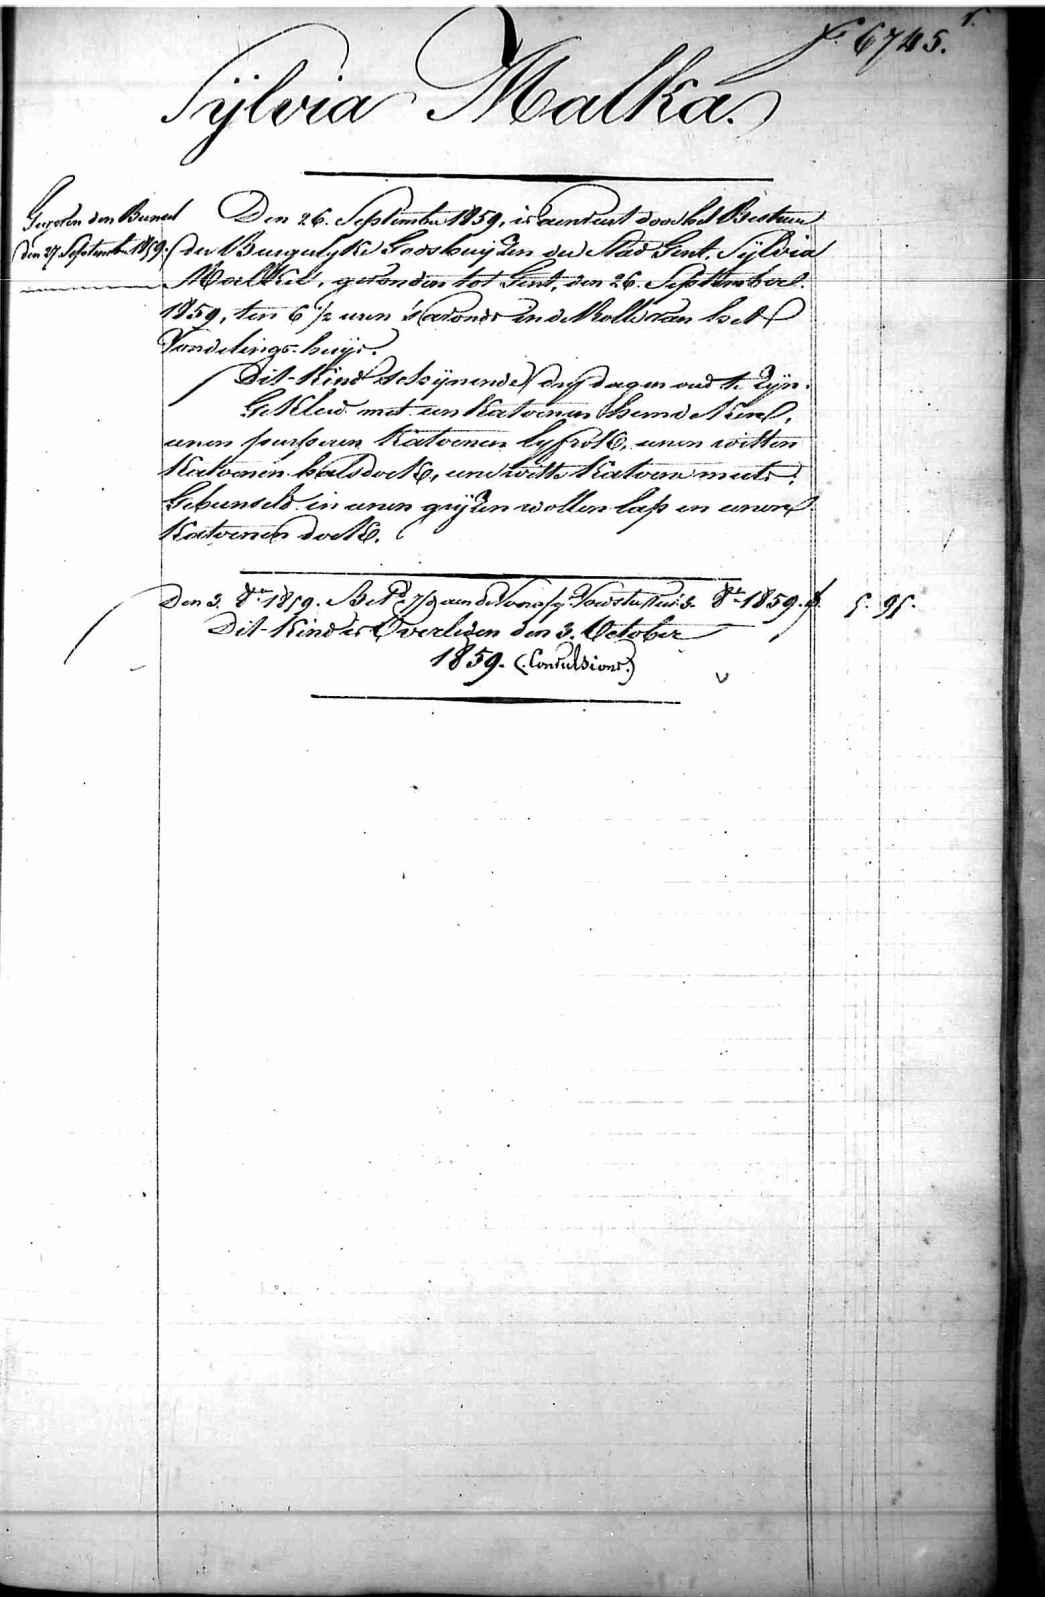 f. 6745.
Sÿlvia Malka.
den 27 September 1859.
Den 26. September 1859, is aenveert door het Bestuur
der Burgerlyke Godshuyzen der Stad Gent, Sÿlvia
gevonden tot Gent, den 26. September
1859, ten 6 1/2 uren 's avonds in de Rolle van het
Vondelings-huys.
Dit Kind schynende dry dagen oud te zyn.
Gekleed met een Katoenen hemdeken,
eenen purperen Katoenen lyfrok, eenen witten
Katoenen halsdoek, eene witte Katoene muts.
Gebunseld in eenen gryzen wollen lap en eenen
Katoenen doek.
Den 3. 8bre 1859. 3. 8bre 1859. f. 5. 95.
Dit Kind is Overleden den 3. October
1859. (Convulsions.)